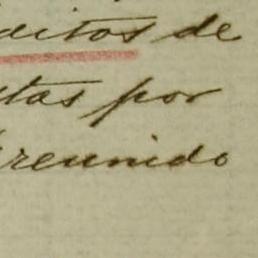 ditos de
tas por
reunido